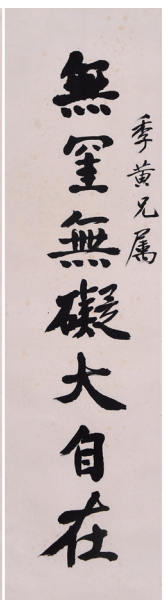 季黄兄属
無罣無礙大自在